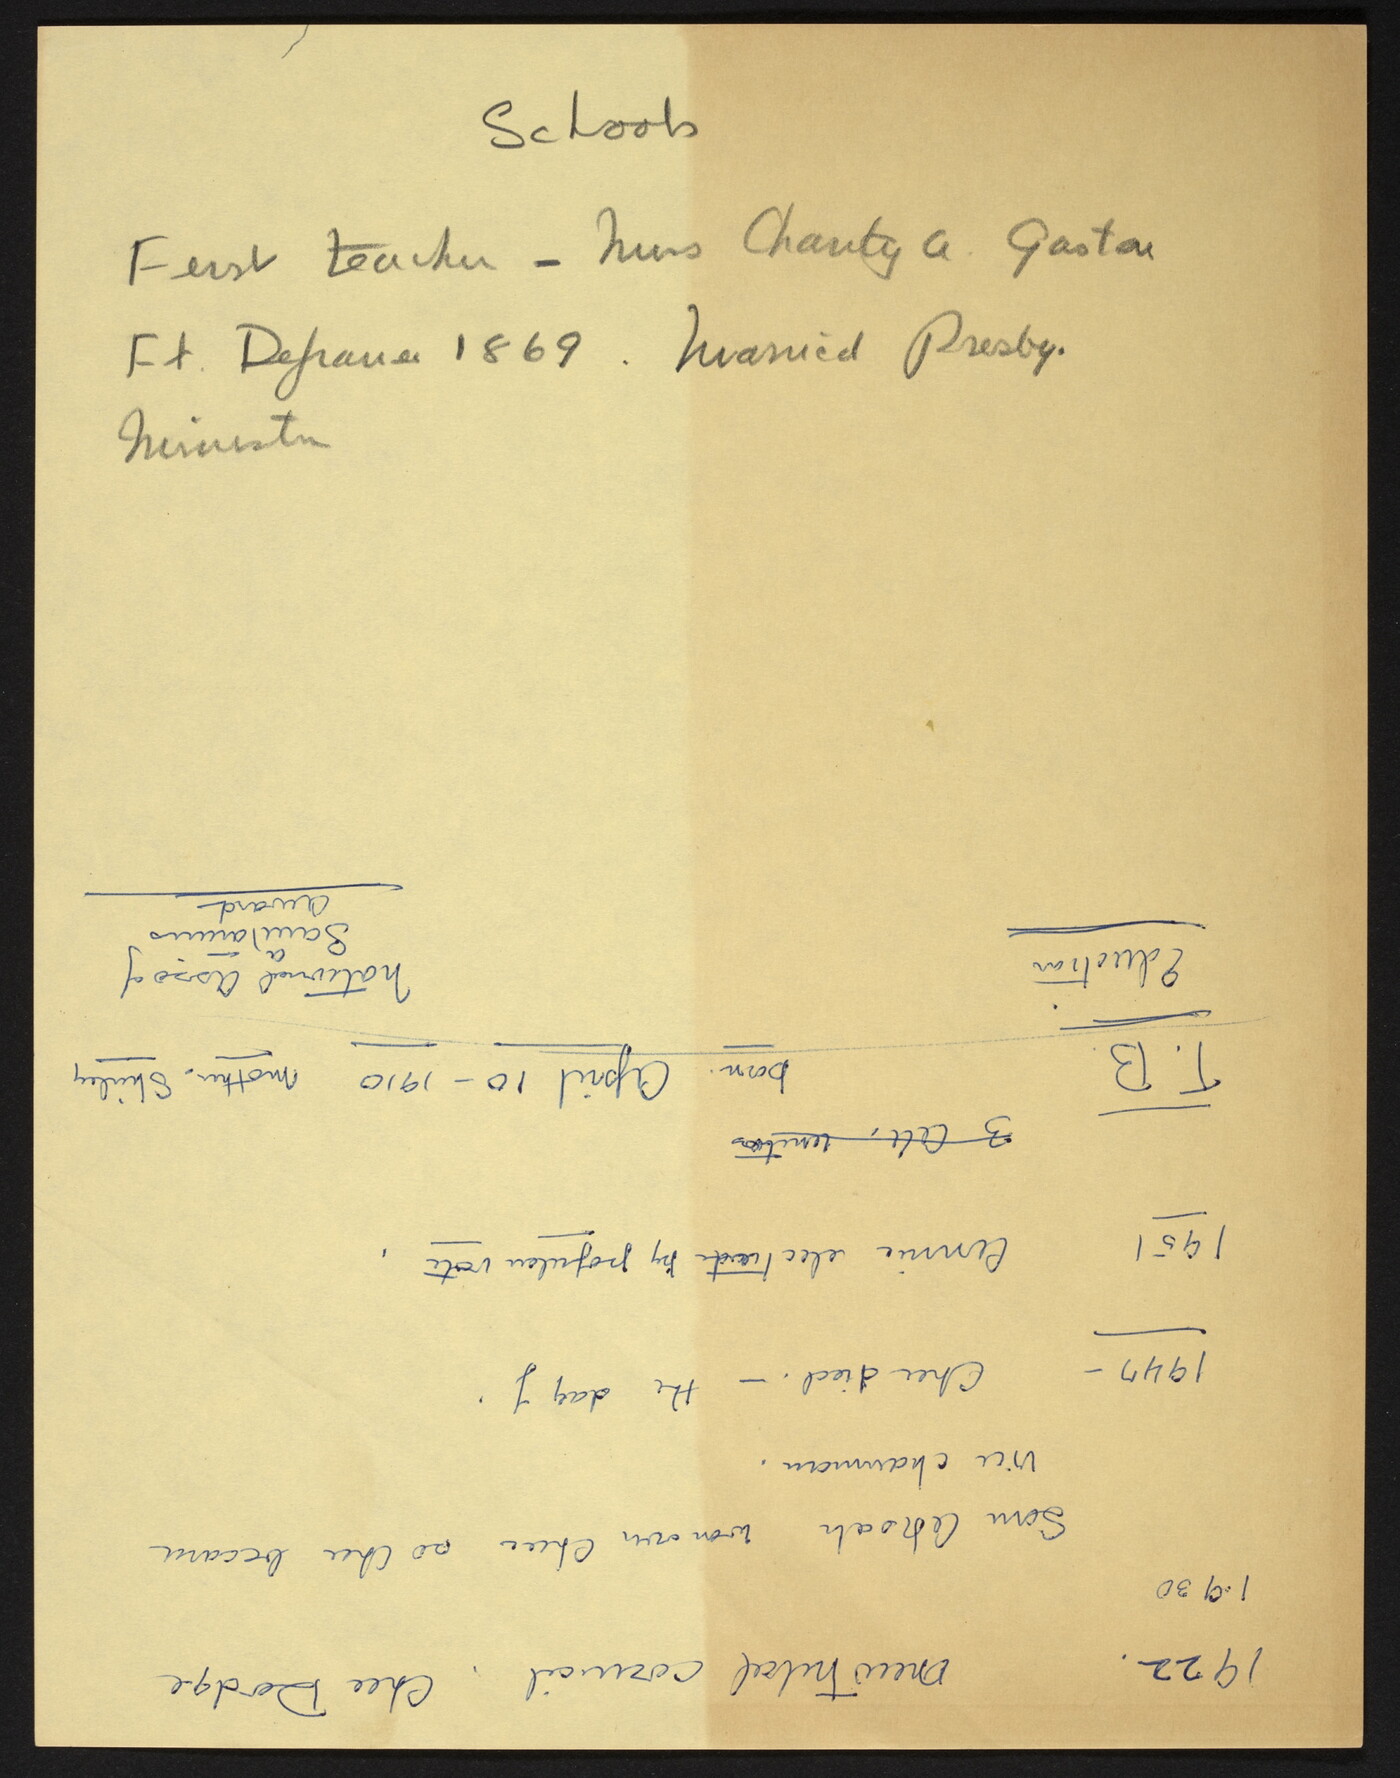 Schools
First teacher - Miss Charity A. Gaston
Ft. Defiance 1869. Married Presby.
Minister
1922. new Tribal Council. Chee Dodge
1930
Sam Ahkeah won over Chee so Chee became
vice chairman.
1947 - Chee died. - the day of.
1951 Annie elected by popular vote.
3 
T. B. born. April 10 - 1910 Mother. Shirley
Education
National Asso of
a
Sanitariums
Award